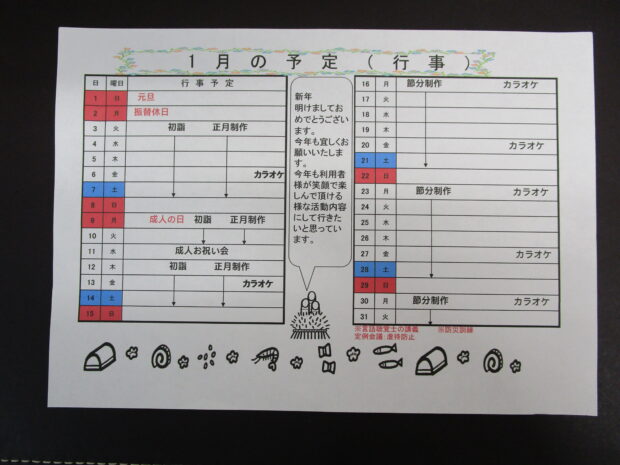 1月の予定(行事)
日 曜日 行事予定
1 日 元旦
2 月 振替休日
3 火 初詣 正月制作
4 水
5 木
6 金 カラオケ
7 土
8 日
9 月 成人の日 初詣 正月制作
10 火
11 水 成人お祝い会
12 木 初詣 正月制作
13 金 カラオケ
14 土
15 日
新年
明けましてお
めでとうござい
ます。
今年も宜しくお
願いいたしま
す。
今年も利用者
様が笑顔で楽
しんで頂ける
様な活動内容
にして行きた
いと思ってい
ます。
16 月 節分制作 カラオケ
17 火
18 水
19 木
20 金 カラオケ
21 土
22 日
23 月 節分制作 カラオケ
24 火
25 水
26 木
27 金 カラオケ
28 土
29 日
30 月 節分制作 カラオケ
31 火
※言語聴覚士の講義 ※防災訓練
定例会議:虐待防止